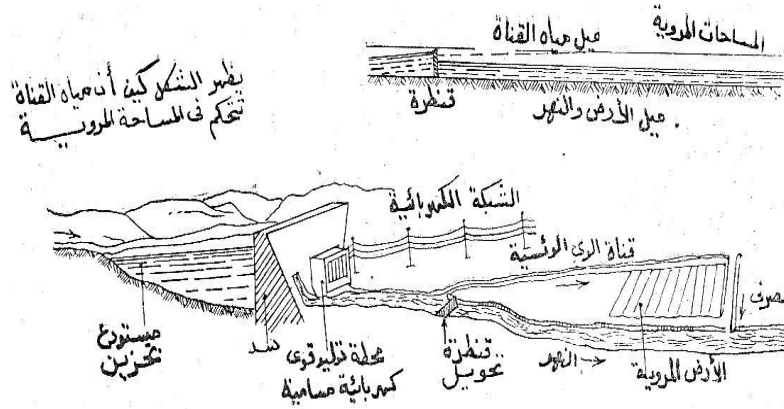 المساحات المروية
ميل مياه القناة
قنطرة
ميل الأرض والنهر
يظهر الشكل كيف أن مياه القناة
تتحكم في المساحة المرويـــة
الشبكة الكهربائية
قناة الري الرئسية
مصرف
مستودع
تخزين
سد
محطة توليد قوى
كهربائية مسامية
قنطرة
تحويل
النهر
الأرض المروية